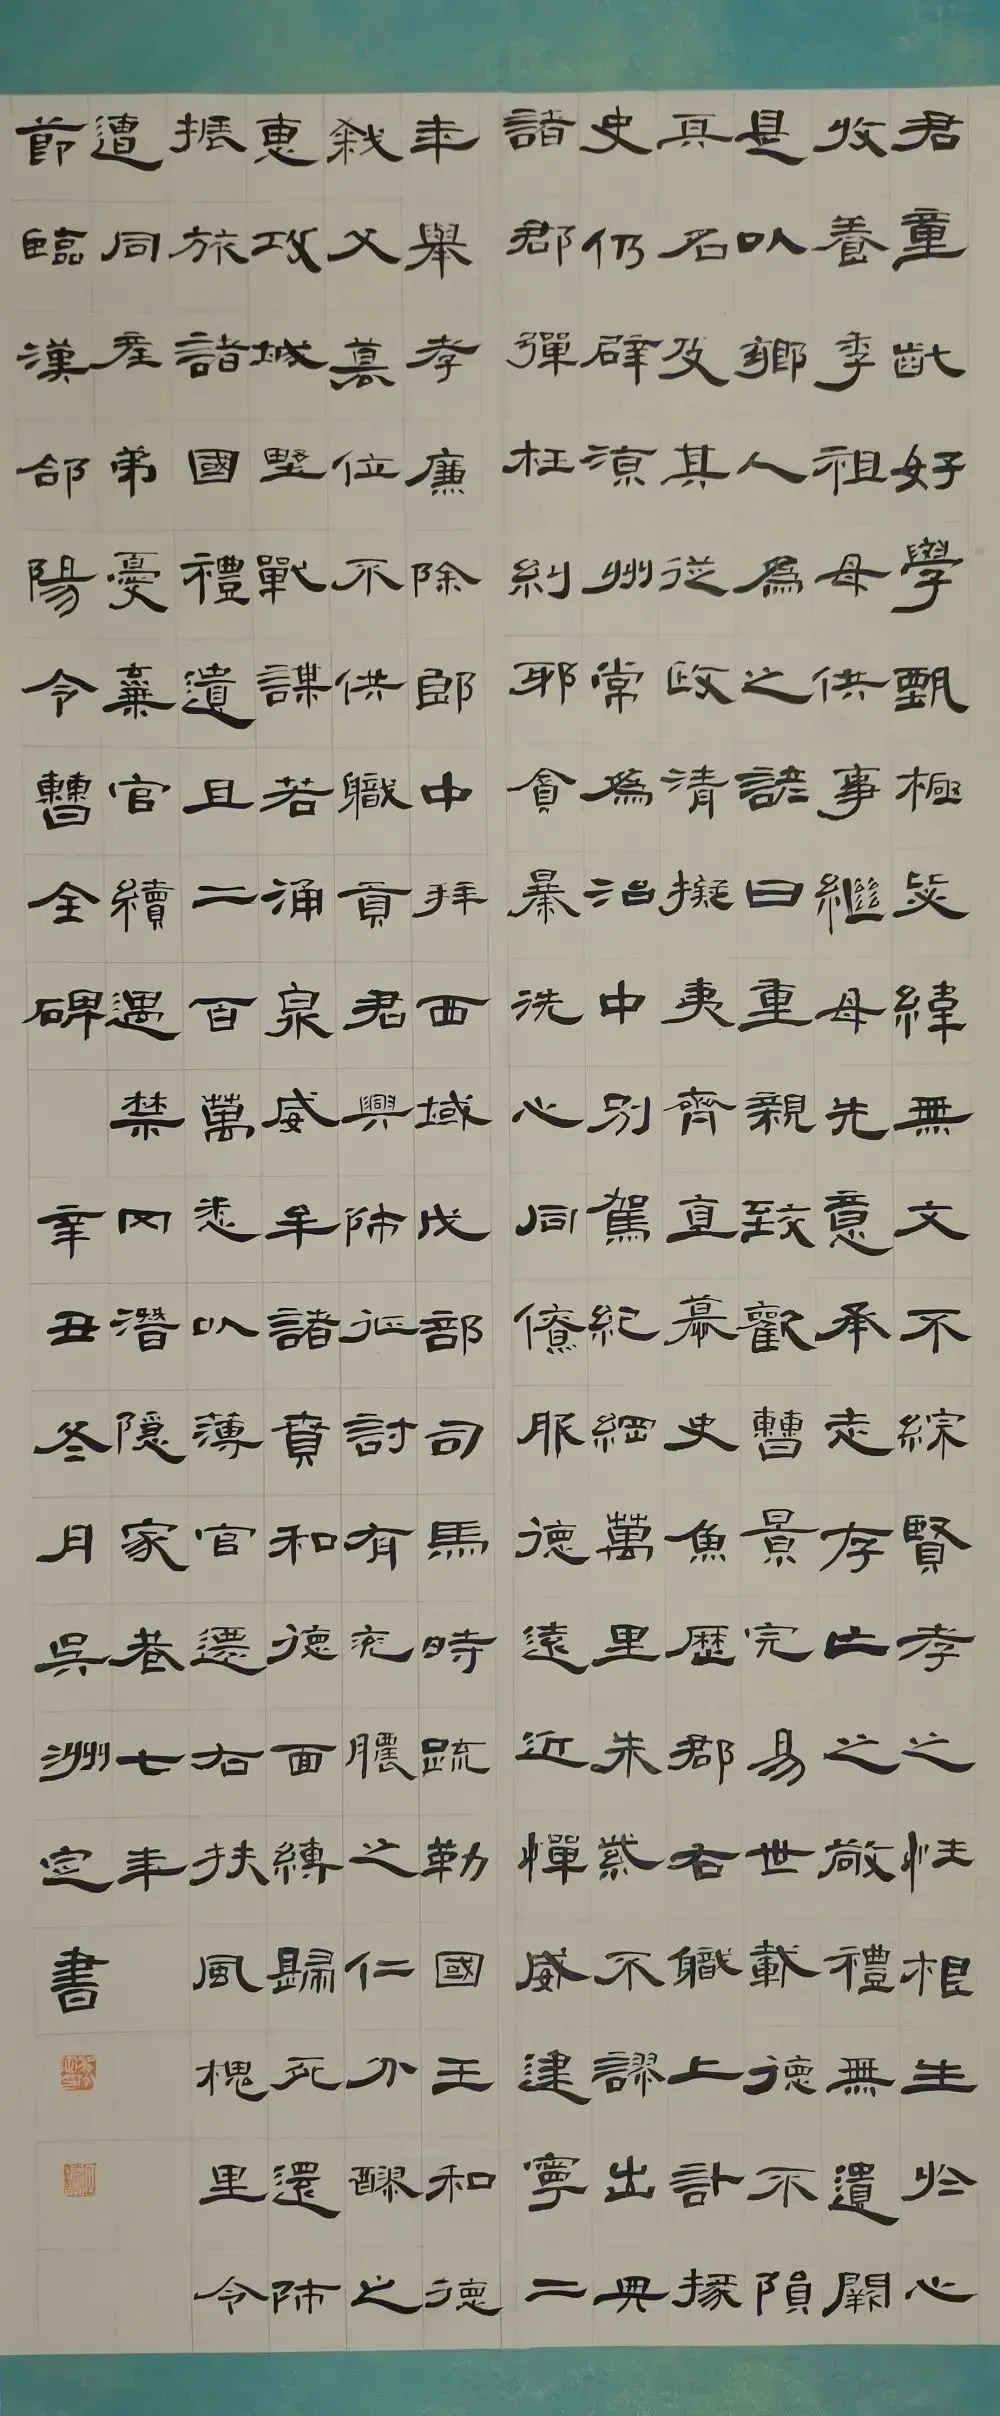 君童齔好學甄極毖緯無文不綜賢孝之性根生於心
收養季祖母供事繼母先意承志存亡之敬禮無遺闕
是以鄉人為之諺曰重親致歡曹景完易世載德不隕
其名及其從政清擬夷齊直慕史魚歷郡右職上計掾
史仍辟涼州常為治中別駕紀綱萬里朱紫不謬出典
諸郡彈枉糾邪貪暴洗心同僚服德遠近憚威建寧二
年舉孝廉除郎中拜西域戊部司馬時疏勒國王和德
弒父篡位不供職貢君興師征討有兗膿之仁分醪之
惠攻城野戰謀若涌泉威牟諸賁和德面縛歸死還師
振旅諸國禮遺且二百萬悉以薄官遷右扶風槐里令
遭同產弟憂棄官續遇禁冈潛隱家巷七年
節臨漢郃陽令曹全碑 辛丑冬月吳洲定書